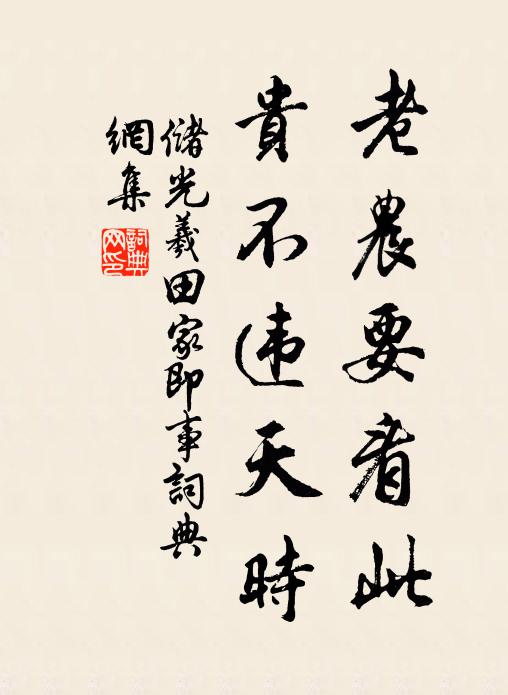 老農要看此
貴不违天時
儲光羲田家即事詞典
網集
詞典网印